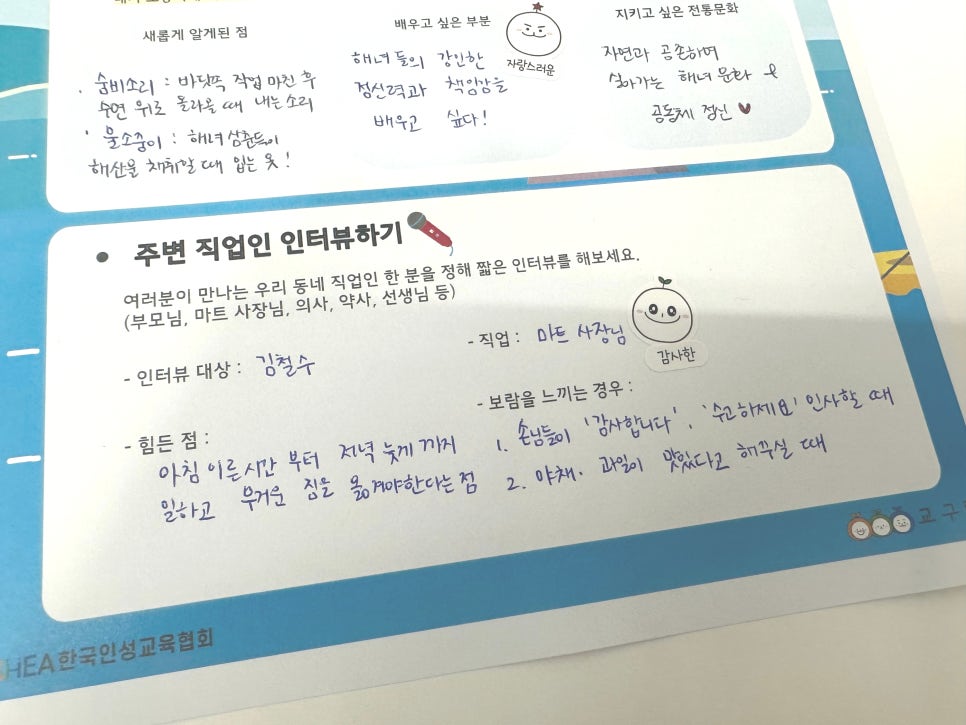 새롭게 알게된 점
· 숨비소리 : 바닷쪽 작업 마친 후
수면 위로 올라올 때 내는 소리
· 물소중이 : 해녀 삼춘들이
해산물 채취할 때 입는 옷!
배우고 싶은 부분
해녀들의 강인한
정신력과 책임감을
배우고 싶다!
자랑스러운
지키고 싶은 전통문화
자연과 공존하며
살아가는 해녀 문화 &
공동체 정신 ♥
• 주변 직업인 인터뷰하기
여러분이 만나는 우리 동네 직업인 한 분을 정해 짧은 인터뷰를 해보세요.
(부모님, 마트 사장님, 의사, 약사, 선생님 등)
- 인터뷰 대상 : 김철수
- 직업 : 마트 사장님
감사한
- 힘든 점 :
아침 이른시간 부터 저녁 늦게까지
일하고 무거운 짐을 옮겨야한다는 점
- 보람을 느끼는 경우 :
1. 손님들이 '감사합니다', '수고하세요' 인사할 때
2. 야채· 과일이 맛있다고 해주실 때
교구
HEA한국인성교육협회